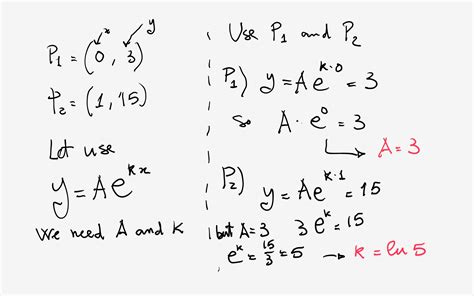 x y
P₁ = (0, 3)
P₂ = (1, 15)
Let use
y = Ae^{kx}
We need A and K
Use P₁ and P₂
P₁) y = Ae^{k·0} = 3
so A · e⁰ = 3
→ A = 3
P₂) y = Ae^{k·1} = 15
but A = 3 3e^k = 15
e^k = 15/3 = 5 → k = ln 5